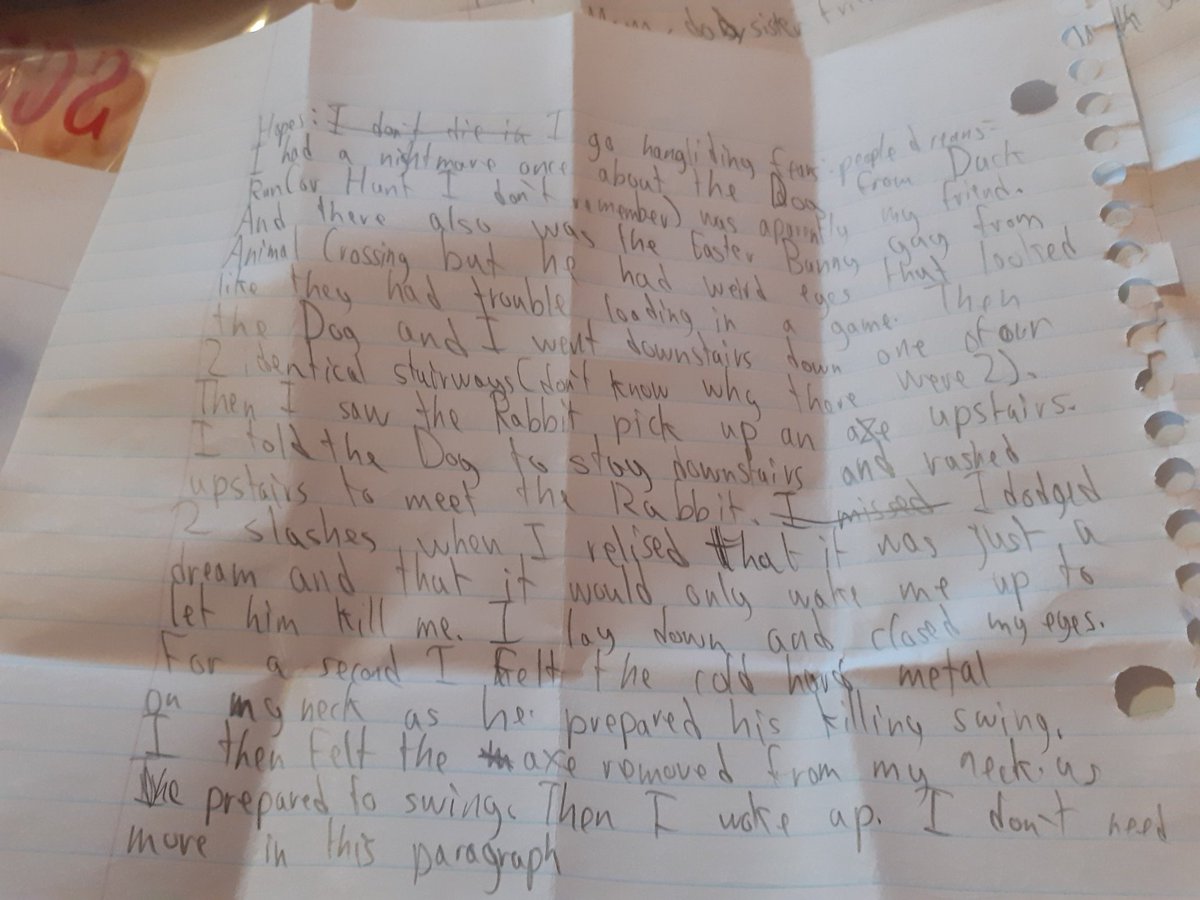 Mom, babysister frien
Hopes: I don't die in I go hangliding fears: people dreams:
I had a nightmare once about the Dog from Duck
Run(or Hunt I don't remember) was aparently my friend.
And there also was the Easter Bunny guy from
Animal Crossing but he had weird eyes that looked
like they had trouble loading in a game. Then
the Dog and I went downstairs down one of our
2 identical stairways(don't know why there were 2).
Then I saw the Rabbit pick up an axe upstairs.
I told the Dog to stay downstairs and rushed
upstairs to meet the Rabbit. I missed I dodged
2 slashes when I relised that it was just a
dream and that it would only wake me up to
let him kill me. I lay down and closed my eyes.
For a second I felt the cold hard metal
on my neck as he prepared his killing swing.
I then felt the axe removed from my neck as
he prepared to swing. Then I woke up. I don't need
more in this paragraph